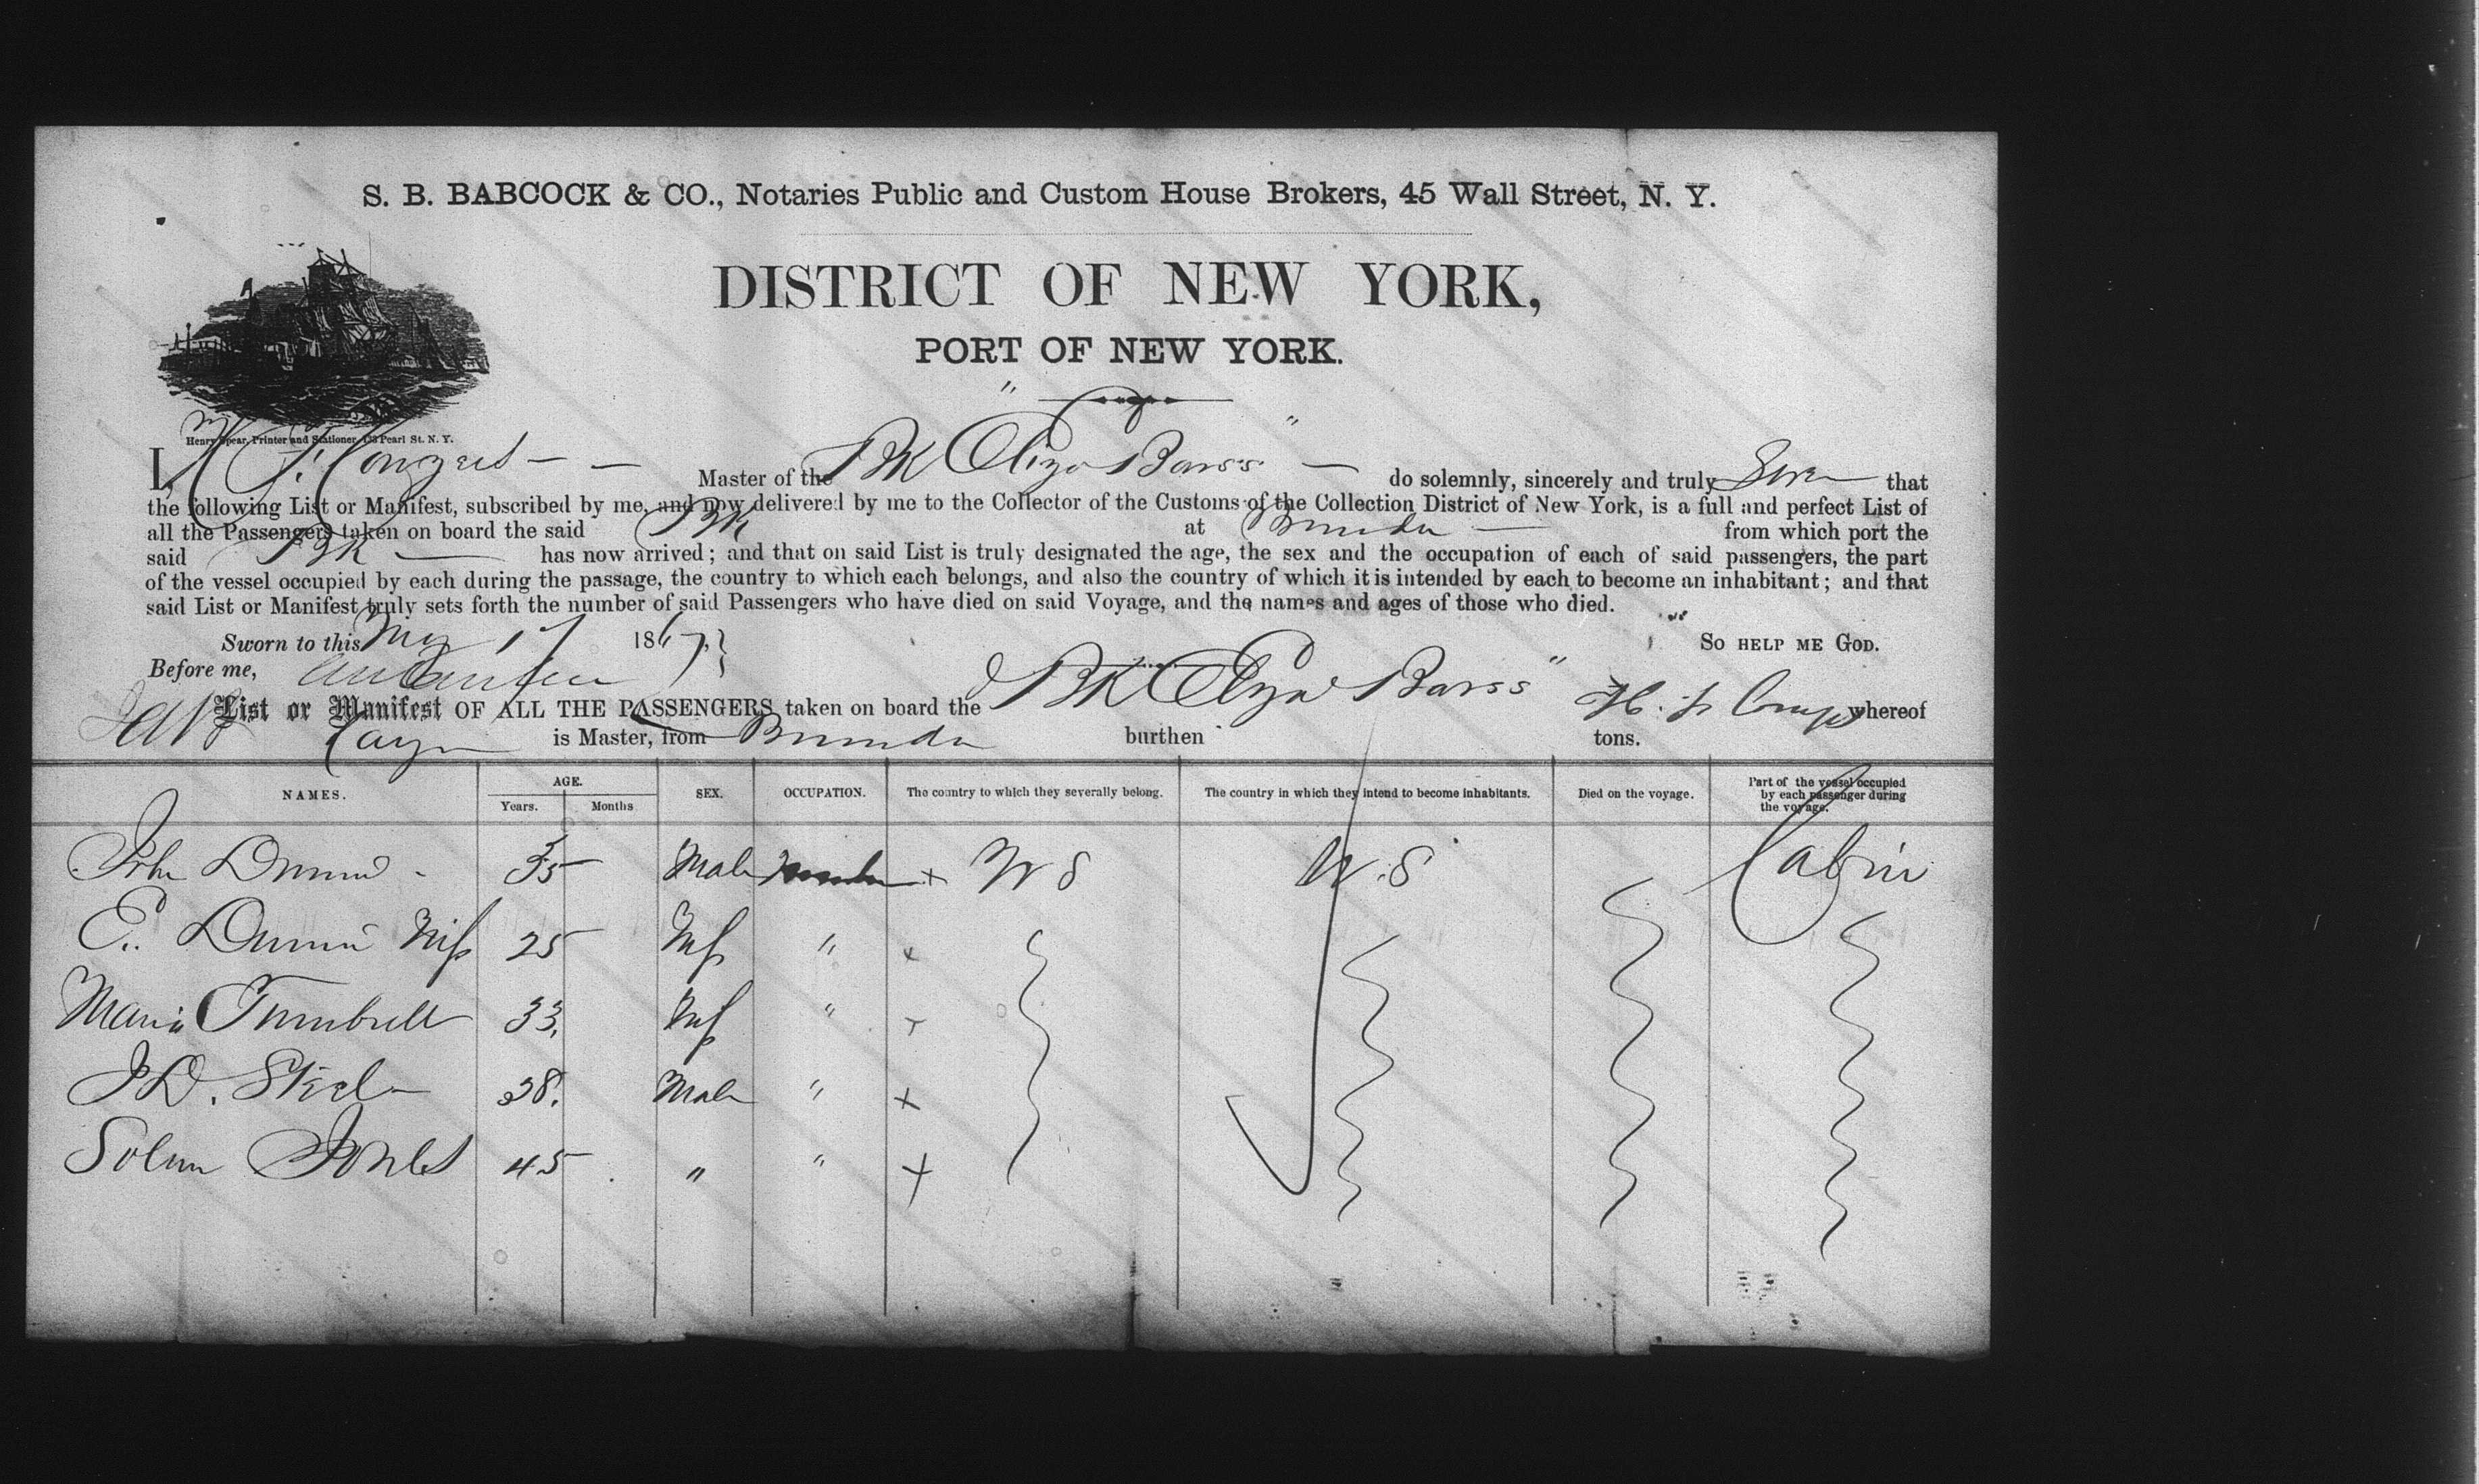 S. B. BABCOCK & CO., Notaries Public and Custom House Brokers, 45 Wall Street, N. Y.
DISTRICT OF NEW YORK,
PORT OF NEW YORK.
Henry Spear, Printer and Stationer, Pearl St. N. Y.
I, Master of the "BK Eliza Barss" do solemnly, sincerely and truly that
the following List or Manifest, subscribed by me, and now delivered by me to the Collector of the Customs of the Collection District of New York, is a full and perfect List of
all the Passengers taken on board the said BK at from which port the
said BK has now arrived; and that on said List is truly designated the age, the sex and the occupation of each of said passengers, the part
of the vessel occupied by each during the passage, the country to which each belongs, and also the country of which it is intended by each to become an inhabitant; and that
said List or Manifest truly sets forth the number of said Passengers who have died on said Voyage, and the names and ages of those who died.
Sworn to this May 17 1867. } SO HELP ME GOD.
Before me,
List or Manifest OF ALL THE PASSENGERS taken on board the BK Eliza Barss" whereof
is Master, from burthen tons.
NAMES. AGE. Years. Months SEX. OCCUPATION. The country to which they severally belong. The country in which they intend to become inhabitants. Died on the voyage. Part of the vessel occupied by each passenger during the voyage.
John 35 Male + U S U.S Cabin
E. 25 " +
Maria Turnbull 33. " +
J D. Steele 38. Male " +
Jones 45 " " +